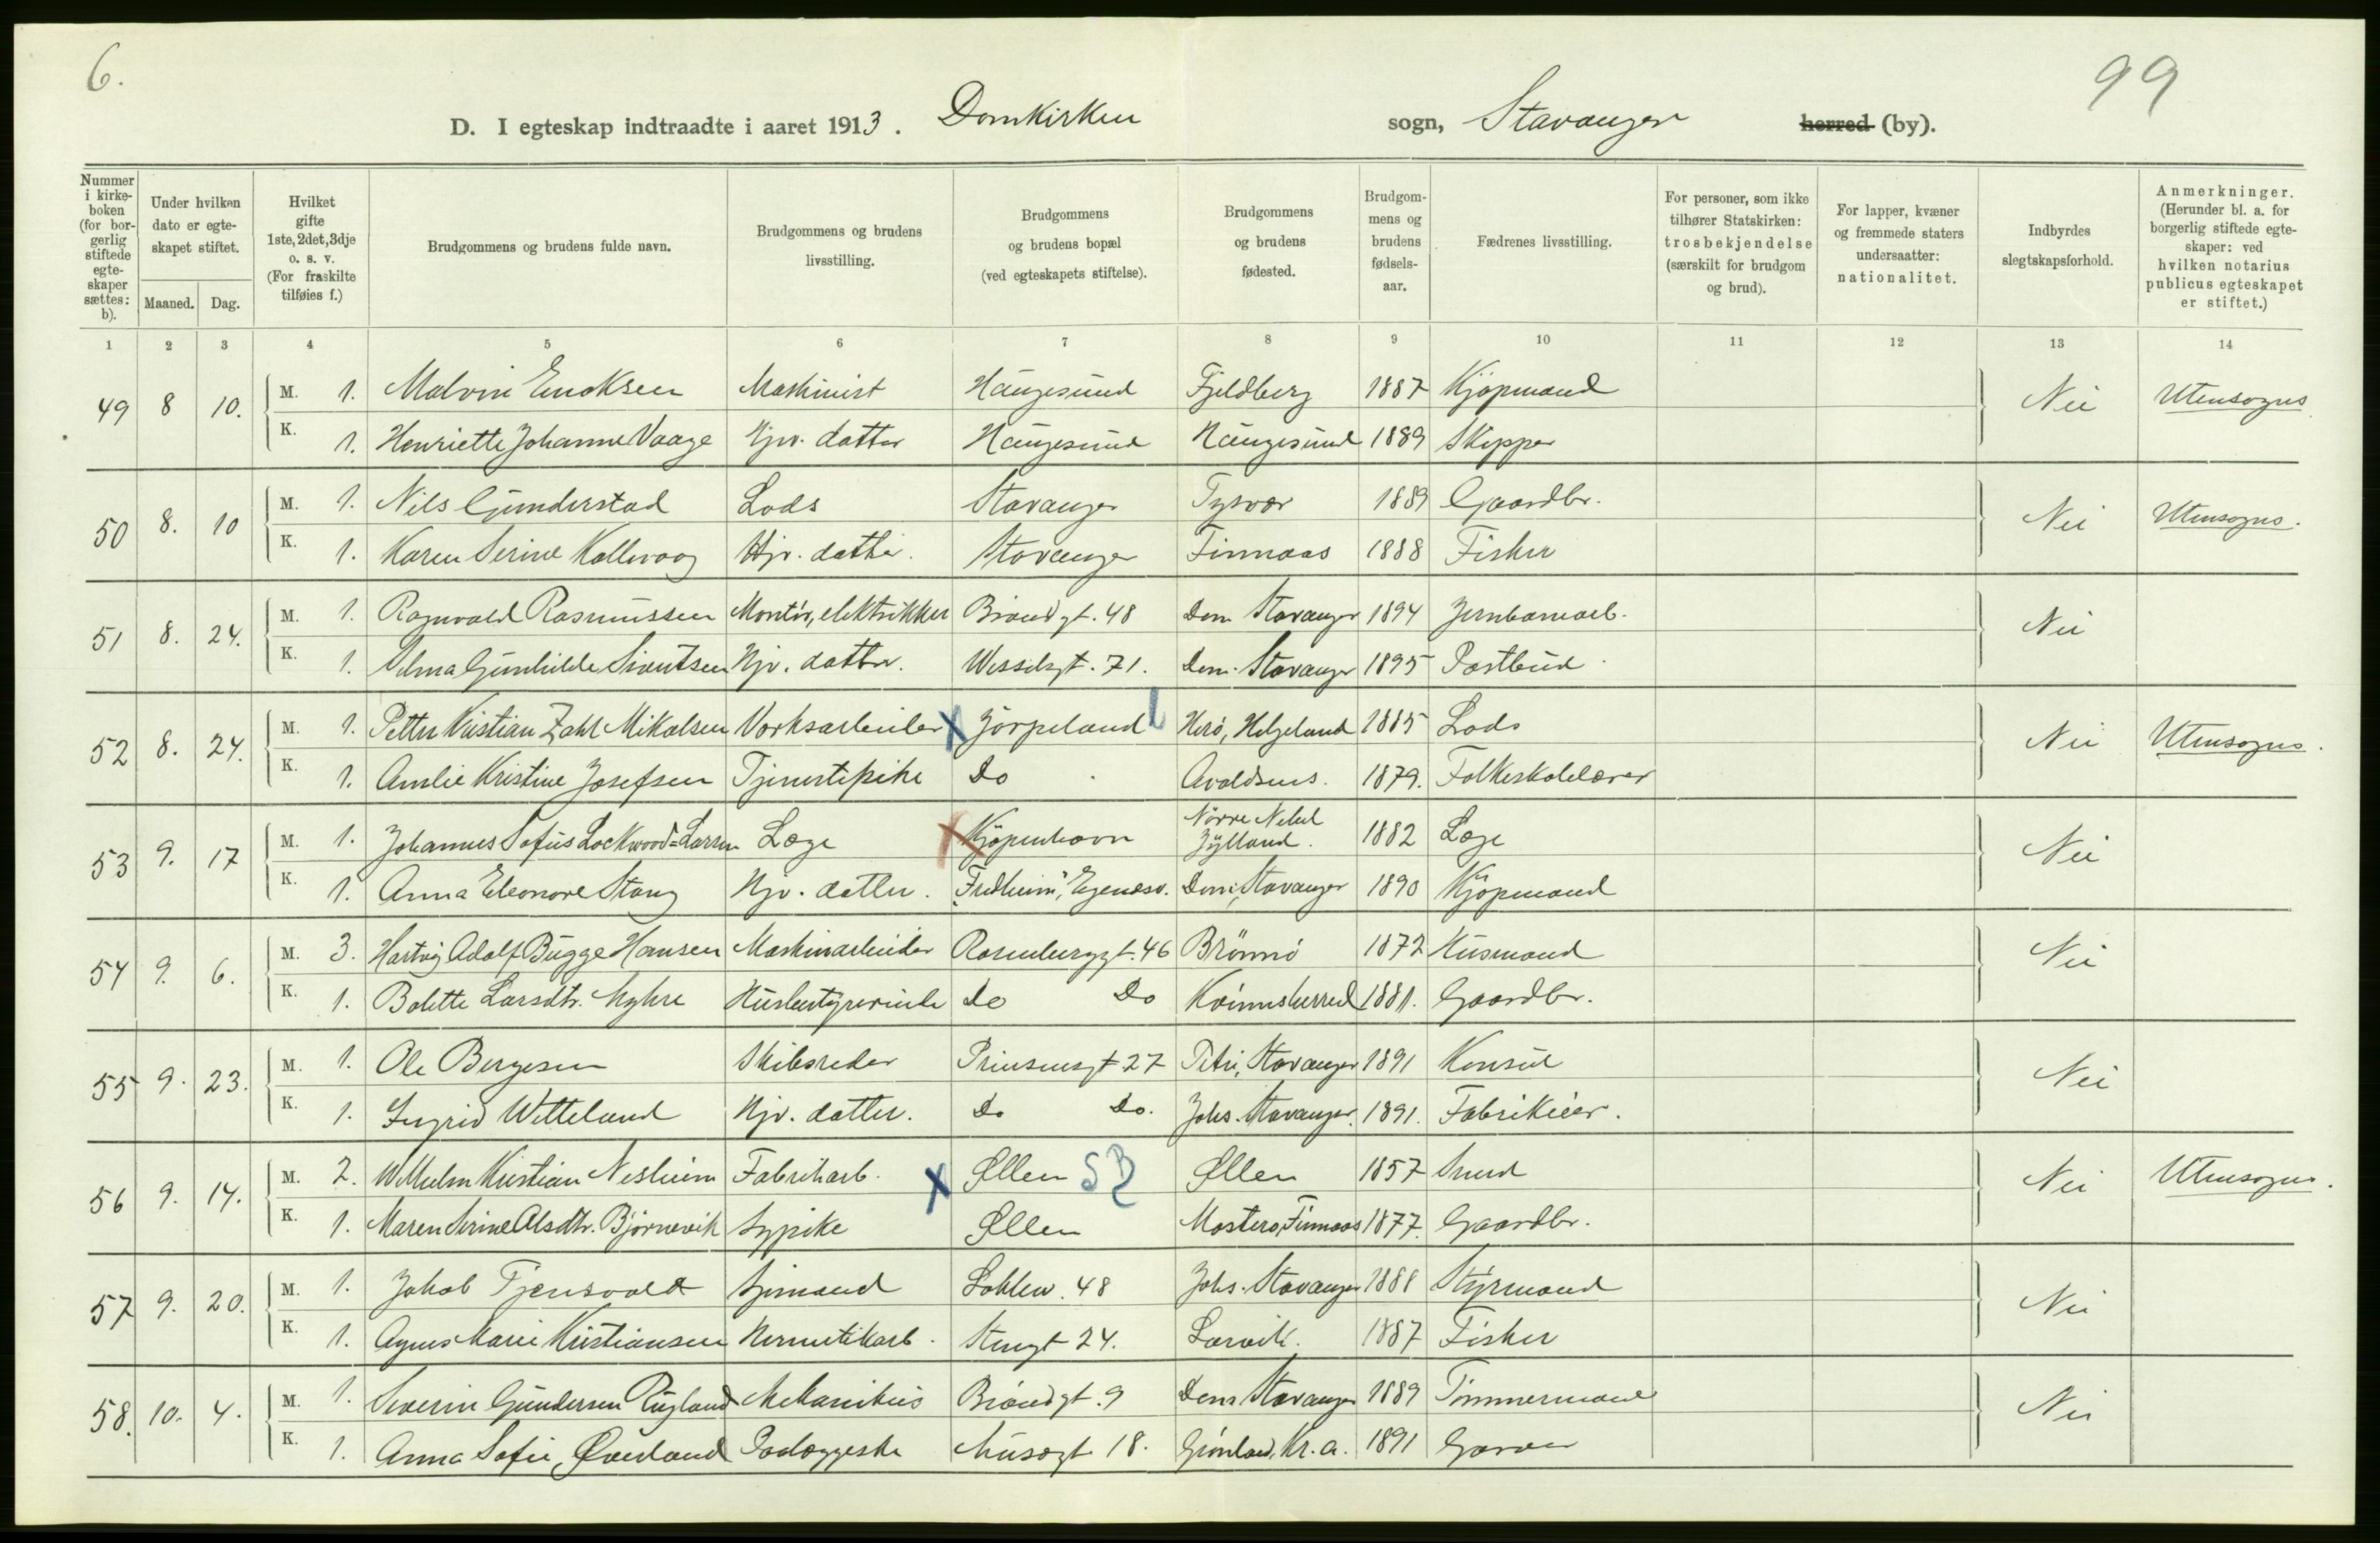 6.
99
D. I egteskap indtraadte i aaret 1913. Domkirken sogn, Stavanger herred (by).
Nummer i kirkeboken (for borgerlig stiftede egteskaper sættes: b).
Under hvilken dato er egteskapet stiftet.
Maaned. Dag.
Hvilket gifte 1ste, 2det, 3dje o. s. v. (For fraskilte tilføies f.)
Brudgommens og brudens fulde navn.
Brudgommens og brudens livsstilling.
Brudgommens og brudens bopæl (ved egteskapets stiftelse).
Brudgommens og brudens fødested.
Brudgommens og brudens fødselsaar.
Fædrenes livsstilling.
For personer, som ikke tilhører Statskirken: trosbekjendelse (særskilt for brudgom og brud).
For lapper, kvæner og fremmede staters undersaatter: nationalitet.
Indbyrdes slegtskapsforhold.
Anmerkninger. (Herunder bl. a. for borgerlig stiftede egteskaper: ved hvilken notarius publicus egteskapet er stiftet.)
1 2 3 4 5 6 7 8 9 10 11 12 13 14
49 8 10. M. 1. Malvin Enoksen Maskinist Haugesund Fjeldberg 1887 Kjøpmand Nei Utensogns
K. 1. Henriette Johanne Vaage Hjv. datter Haugesund Haugesund 1889 Skipper
50 8. 10 M. 1. Nils Gunderstad Lods Stavanger Tysvær 1889 Gaardbr. Nei Utensogns.
K. 1. Karen Serine Kallevaag Hjv. datter. Stavanger Finnaas 1888 Fisker
51 8. 24. M. 1. Ragnvald Rasmussen Montör, elektrikker Brandgt. 48 Dom Stavanger 1894 Jernbanearb. Nei
K. 1. Selma Gunhilde Sivertsen Hjv. datter. Wesselsgt. 71. Dom. Stavanger 1895 Postbud
52 8. 24. M. 1. Petter Kristian Zahl Mikalsen Verksarbeider Jörpeland Herö, Helgeland 1885 Lods Nei Utensogns.
K. 1. Amlie Kristine Josefsen Tjenestepike Do Avaldsnes. 1879. Folkeskolelærer
53 9. 17 M. 1. Johannes Sofus Lockwood=Larsen Læge Kjöpenhavn Nörre Nebel Jylland. 1882 Læge Nei
K. 1. Anna Eleonore Stang Hjv. datter. "Fredheim", Egenesv. Dom, Stavanger 1890 Kjöpmand
54 9. 6. M. 3. Hartvig Adolf Bugge Hansen Maskinarbeider Rosenberggt. 46 Brönnö 1872 Husmand Nei
K. 1. Bolette Larsdtr. Myhre Husbestyrerinde Do Do Kvinnsherred 1881. Gaardbr.
55 9. 23. M. 1. Ole Bergesen Skibsreder Prinsensgt 27 Petri, Stavanger 1891 Konsul Nei
K. 1. Ingrid Witteland Hjv. datter. Do Do. Johs. Stavanger. 1891. Fabrikeier.
56 9. 14. M. 2. Wilhelm Kristian Nesheim Fabrikarb. Ølen Ølen 1857 Smed Nei Utensogns.
K. 1. Maren Serine Olsdtr. Björnevik Sypike Ølen Mosterö, Finnaas 1877. Gaardbr.
57 9. 20. M. 1. Jakob Tjensvold Sjömand Lökkev. 48 Johs. Stavanger 1888 Styrmand Nei
K. 1. Agnes Marie Kristiansen Hermetikarb. Stengt 24. Larvik. 1887 Fisker
58. 10. 4. M. 1. Severin Gundersen Rugland Mekanikus Brandgt. 9 Dom Stavanger 1889 Tömmermand Nei
K. 1. Anna Sofie Överland Paalæggerske Musegt 18. Grönland, Kr.a. 1891 Garver